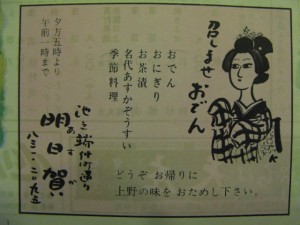 召しませ おでん
おでん
おにぎり
お茶漬
名代あすかぞうすい
季節料理
どうぞ お帰りに
上野の味を おためし下さい。
池之端仲町通り
明日賀
あすか
八三一・二〇九五
夕方五時より
午前一時まで